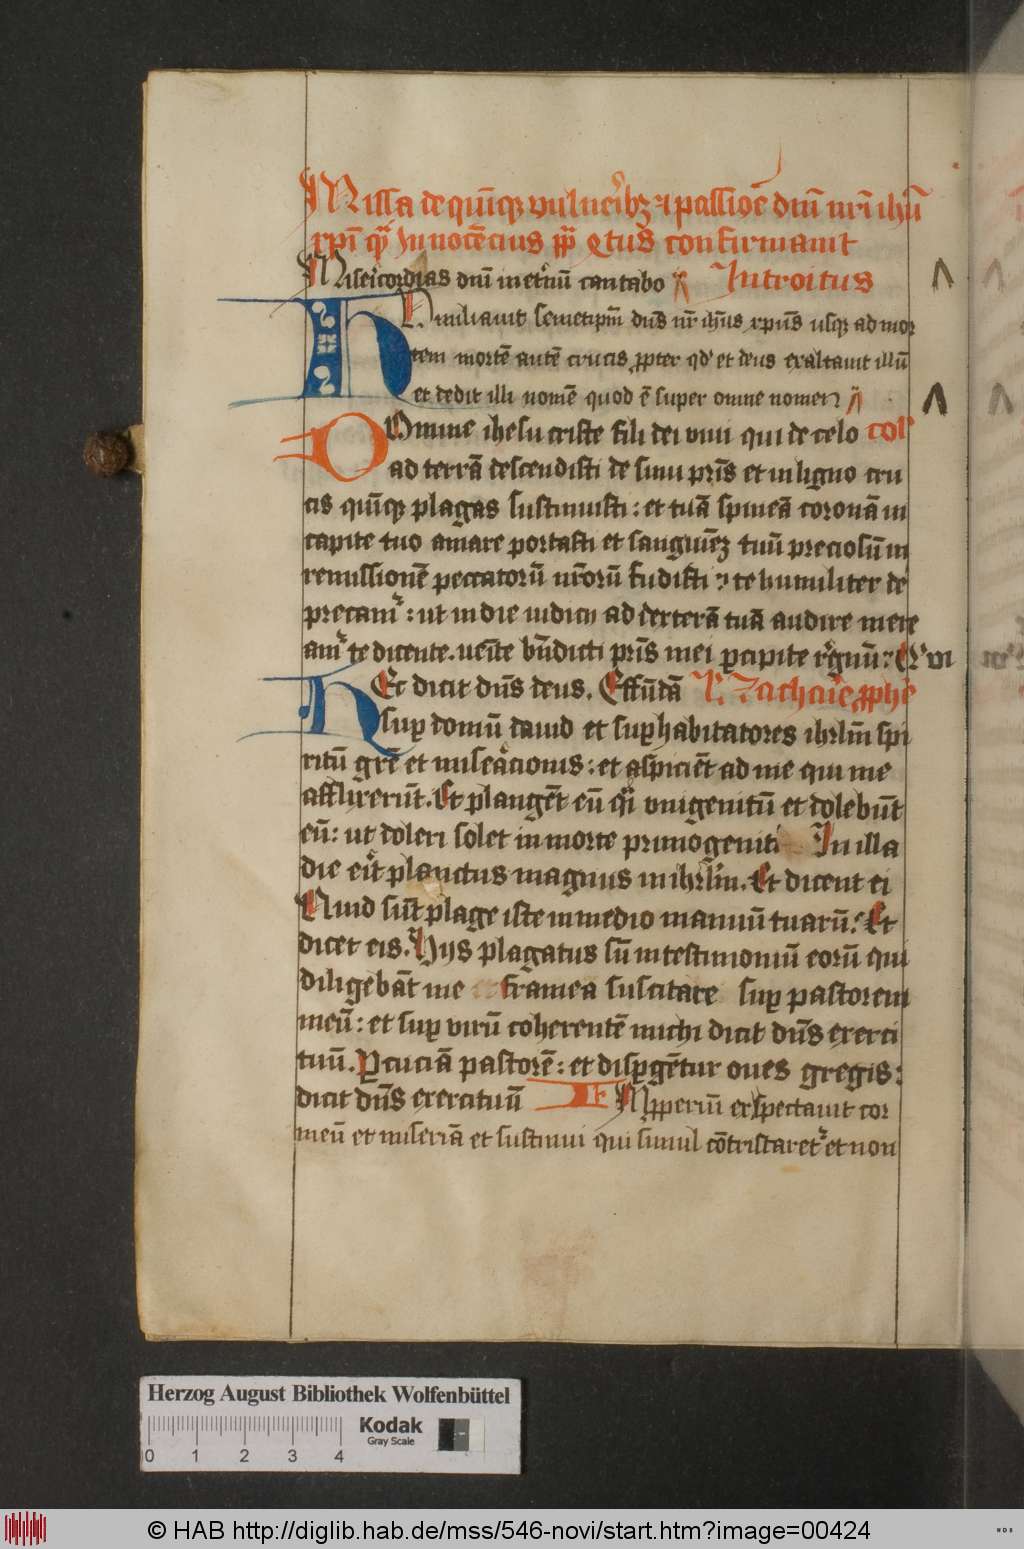 Missa de quīqꝫ vulnerībꝫ ⁊ passioē dn̄i nr̄i ihū
xpī qᷓ Innocēcius pp̄ qͥtus confirmauit
Misericordias dn̄i in et'nū cantabo p̄ Introitus
Humiliauit semetip̄m dn̄s nr̄ ih̄us xpūs usqꝫ ad mor
tem mortē autē crucis ꝓpter qd' et deus exaltauit illū
et dedit illi nomē quod ē super omne nomen p̄
Domine ihesu criste fili dei viui qui de celo col'
ad terrā descendisti de sinu pr̄is et in ligno cru
cis quīqꝫ plagas sustinuisti: et tuā spineā coronā in
capite tuo amare portasti et sanguīeꝫ tuū preciosū in
remissionē peccatorū nr̄orū fudisti: te humiliter de
precamᷣ: ut in die iudicij ad dexterā tuā audire mere
amᷣ te dicente. ueīte bn̄dicti pr̄is mei ꝑcipite rͤgnū: Qͥ vi
Hec dicit dn̄s deus. Effūdā L' Zacharie ꝓphē
suꝑ domū dauid et suꝑ habitatores ihrl̄m spi
ritū grē et miseͣcionis: et aspiciēt ad me qui me
afflixerūt. Et plangēt eū qͣi vnigenitū et dolebūt
eū: ut doleri solet in morte primogeniti In illa
die eīt planctus magnus in ihrl̄m. Et dicent ei
Quid sūt plage iste in medio manuū tuarū: Et
dicet eis. Hijs plagatus sū in testimoniū eorū qui
diligebāt me framea suscitare suꝑ pastorem
meū: et suꝑ virū coherentē michi dicit dn̄s exerci
tuū. Ꝑcuciā pastorē: et disꝑgētur oues gregis:
dicit dn̄s exercituū Imꝓperiū exspectauit cor
meū et miseriā et sustinui qui simul cōtristaretᷣ et non
Herzog August Bibliothek Wolfenbüttel
Kodak
Gray Scale
0 1 2 3 4
© HAB http://diglib.hab.de/mss/546-novi/start.htm?image=00424